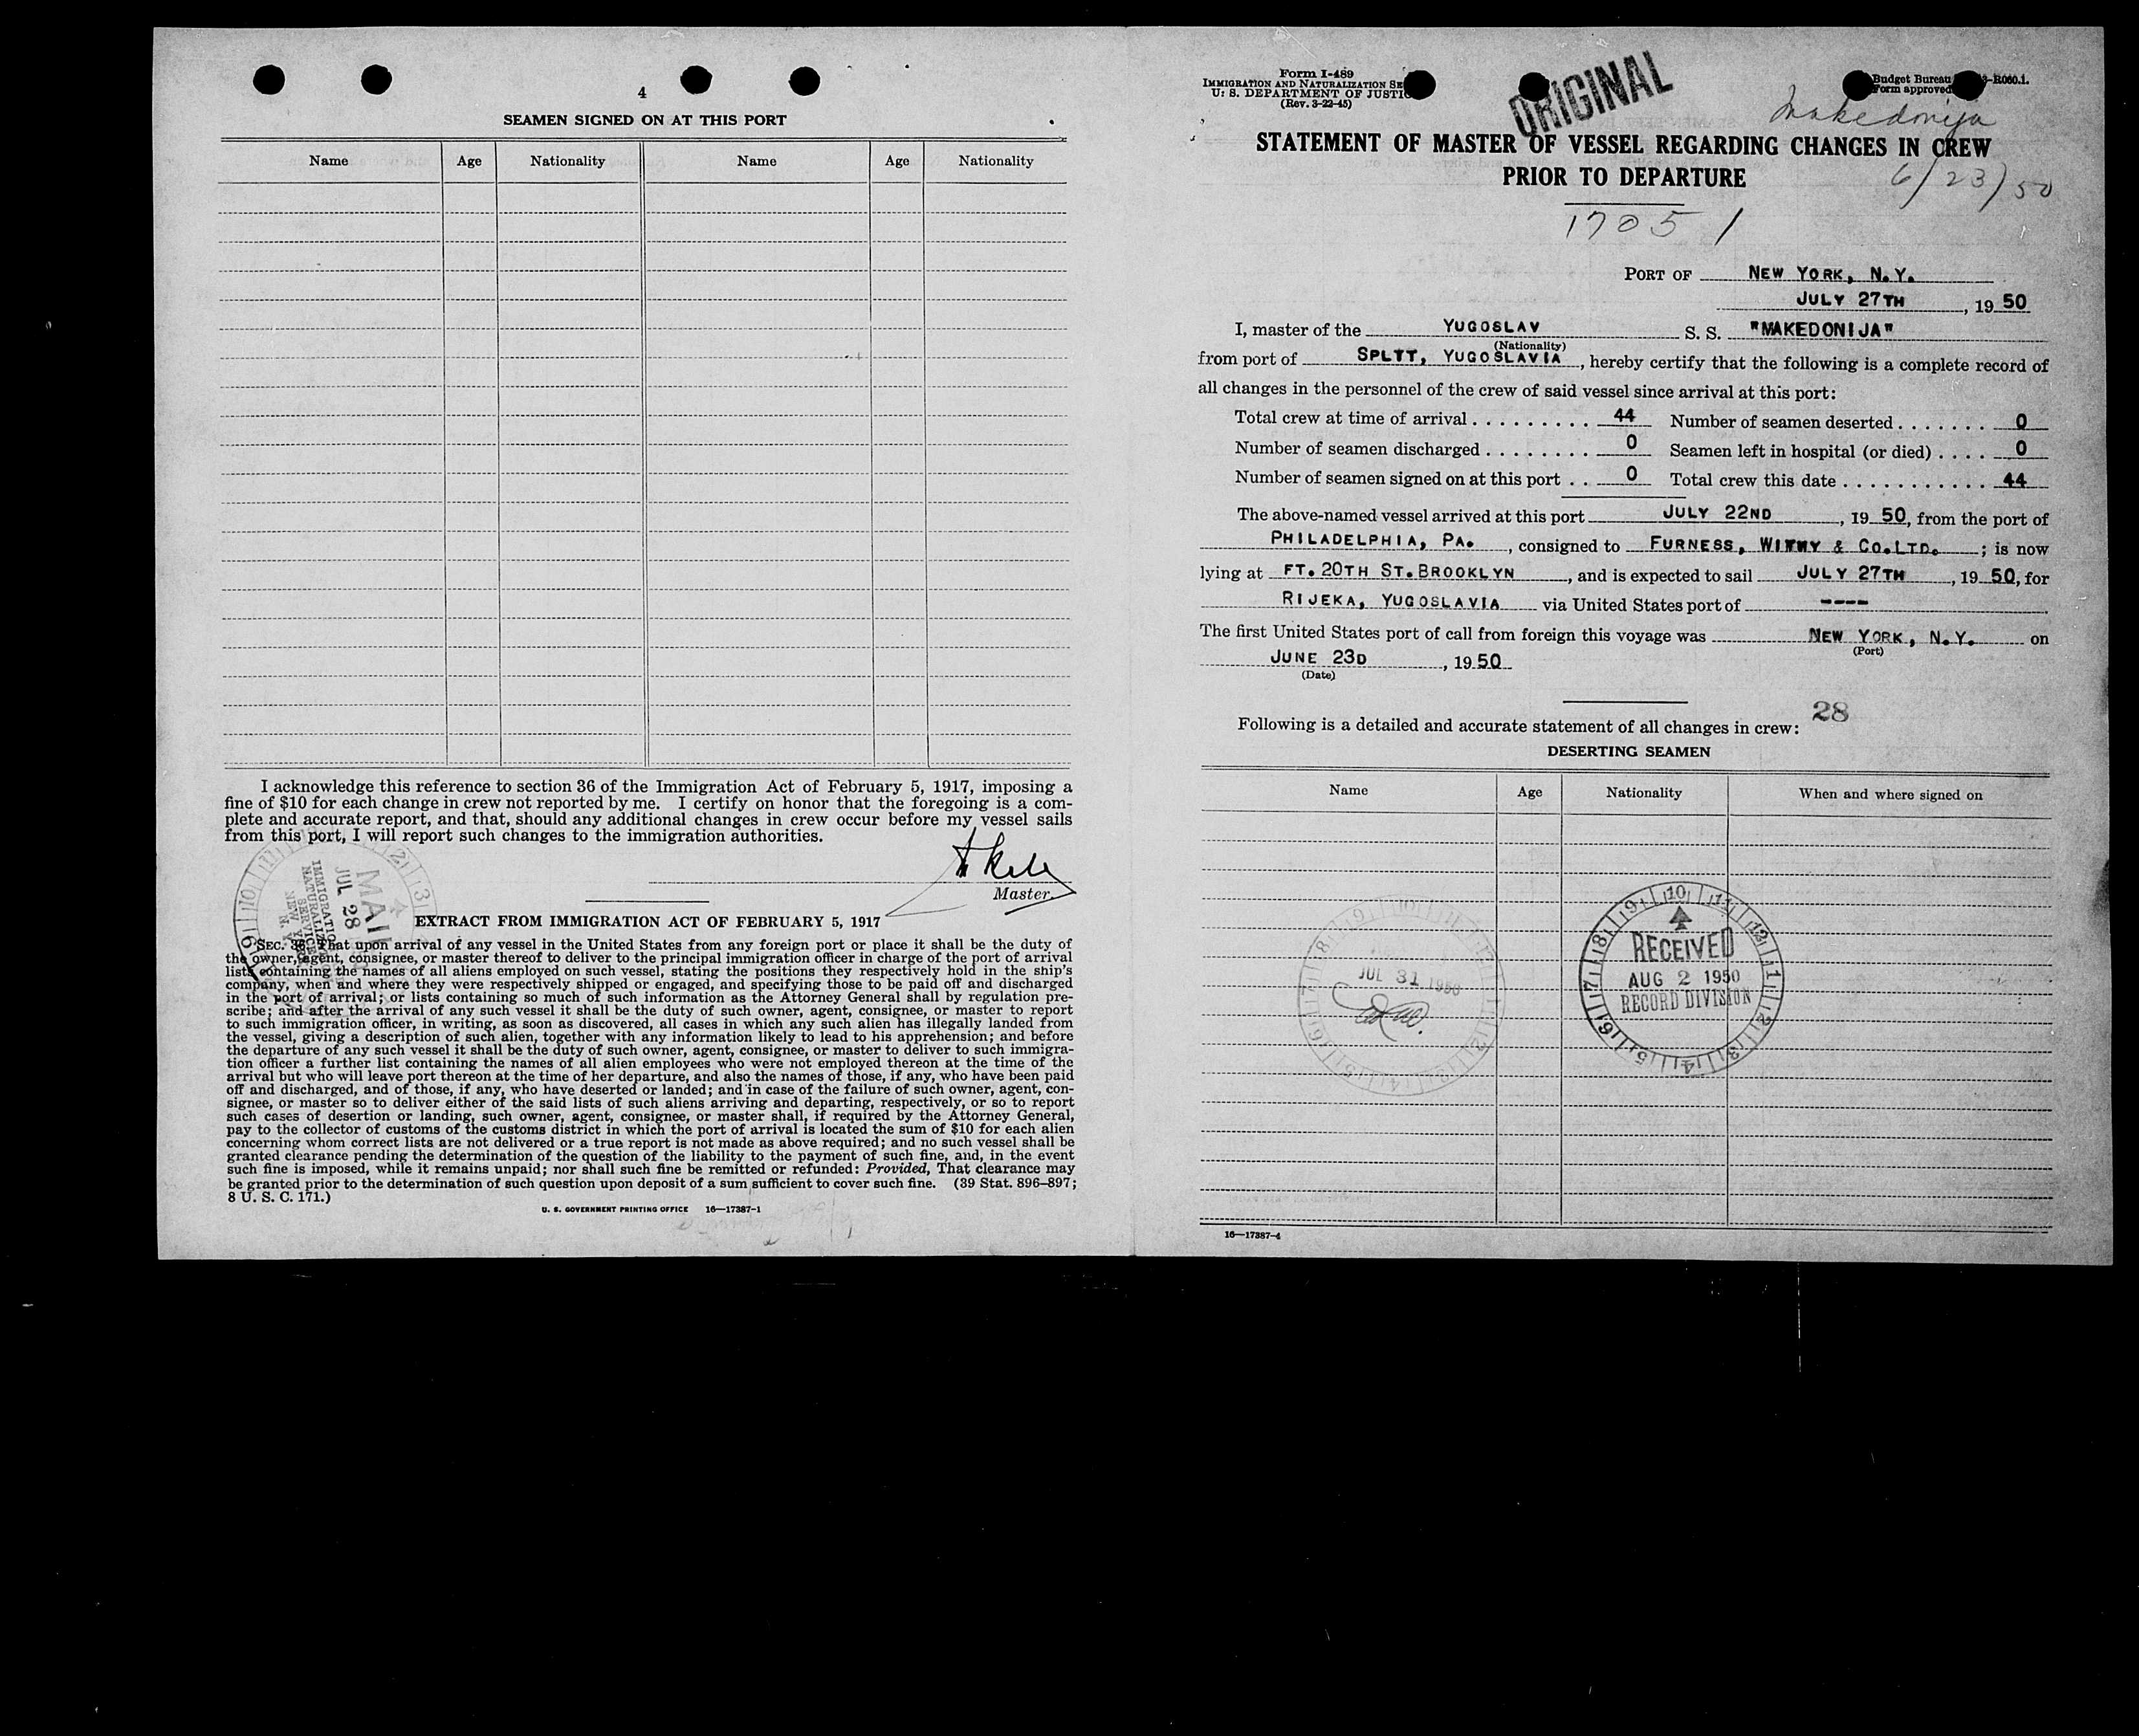 4
SEAMEN SIGNED ON AT THIS PORT
Name Age Nationality Name Age Nationality
I acknowledge this reference to section 36 of the Immigration Act of February 5, 1917, imposing a
fine of $10 for each change in crew not reported by me. I certify on honor that the foregoing is a com-
plete and accurate report, and that, should any additional changes in crew occur before my vessel sails
from this port, I will report such changes to the immigration authorities.
Master.
MAIL
JUL 28
IMMIGRATION
NATURALIZATION
SERVICE
NEW YORK
N. Y.
EXTRACT FROM IMMIGRATION ACT OF FEBRUARY 5, 1917
SEC. 36. That upon arrival of any vessel in the United States from any foreign port or place it shall be the duty of
the owner, agent, consignee, or master thereof to deliver to the principal immigration officer in charge of the port of arrival
lists containing the names of all aliens employed on such vessel, stating the positions they respectively hold in the ship's
company, when and where they were respectively shipped or engaged, and specifying those to be paid off and discharged
in the port of arrival; or lists containing so much of such information as the Attorney General shall by regulation pre-
scribe; and after the arrival of any such vessel it shall be the duty of such owner, agent, consignee, or master to report
to such immigration officer, in writing, as soon as discovered, all cases in which any such alien has illegally landed from
the vessel, giving a description of such alien, together with any information likely to lead to his apprehension; and before
the departure of any such vessel it shall be the duty of such owner, agent, consignee, or master to deliver to such immigra-
tion officer a further list containing the names of all alien employees who were not employed thereon at the time of the
arrival but who will leave port thereon at the time of her departure, and also the names of those, if any, who have been paid
off and discharged, and of those, if any, who have deserted or landed; and in case of the failure of such owner, agent, con-
signee, or master so to deliver either of the said lists of such aliens arriving and departing, respectively, or so to report
such cases of desertion or landing, such owner, agent, consignee, or master shall, if required by the Attorney General,
pay to the collector of customs of the customs district in which the port of arrival is located the sum of $10 for each alien
concerning whom correct lists are not delivered or a true report is not made as above required; and no such vessel shall be
granted clearance pending the determination of the question of the liability to the payment of such fine, and, in the event
such fine is imposed, while it remains unpaid; nor shall such fine be remitted or refunded: Provided, That clearance may
be granted prior to the determination of such question upon deposit of a sum sufficient to cover such fine. (39 Stat. 896–897;
8 U. S. C. 171.)
U. S. GOVERNMENT PRINTING OFFICE 16—17387-1
Form I-489
IMMIGRATION AND NATURALIZATION
U. S. DEPARTMENT OF
(Rev. 3-22-45)
ORIGINAL
Budget Bureau -R060.1.
Form approved
Makedonija
STATEMENT OF MASTER OF VESSEL REGARDING CHANGES IN CREW
PRIOR TO DEPARTURE
6/23/50
1705 1
PORT OF NEW YORK, N.Y.
JULY 27TH, 19 50
I, master of the YUGOSLAV S. S. "MAKEDONIJA"
(Nationality)
from port of SPLTT, YUGOSLAVIA, hereby certify that the following is a complete record of
all changes in the personnel of the crew of said vessel since arrival at this port:
Total crew at time of arrival . . . . . . . . . 44 Number of seamen deserted . . . . . . . 0
Number of seamen discharged . . . . . . . . 0 Seamen left in hospital (or died) . . . . 0
Number of seamen signed on at this port . . 0 Total crew this date . . . . . . . . . . . 44
The above-named vessel arrived at this port JULY 22ND, 19 50, from the port of
PHILADELPHIA, PA., consigned to FURNESS, WITHY & CO.LTD. ; is now
lying at FT. 20TH ST. BROOKLYN, and is expected to sail JULY 27TH, 19 50, for
RIJEKA, YUGOSLAVIA via United States port of ----
The first United States port of call from foreign this voyage was NEW YORK, N.Y. on
(Port)
JUNE 23D, 19 50
(Date)
28
Following is a detailed and accurate statement of all changes in crew:
DESERTING SEAMEN
Name Age Nationality When and where signed on
JUL 31 1950
RECEIVED
AUG 2 1950
RECORD DIVISION
16—17387-4